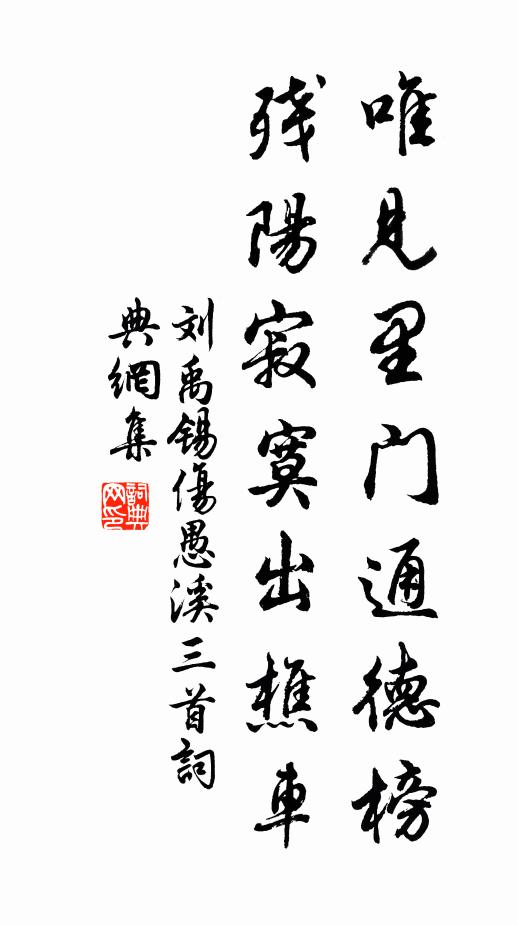 唯見里門通德榜
残陽寂寞出樵車
刘禹锡傷愚溪三首詞
典網集
詞典网印